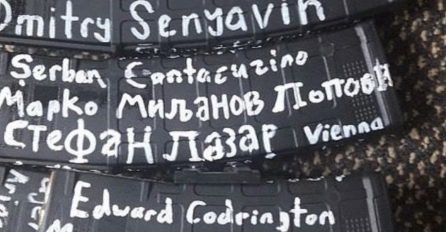 Dmitry Senyavin
Serban Cantacuzino
Марко Миљанов Попови
Стефан Лазар Vienna
Edward Codrington